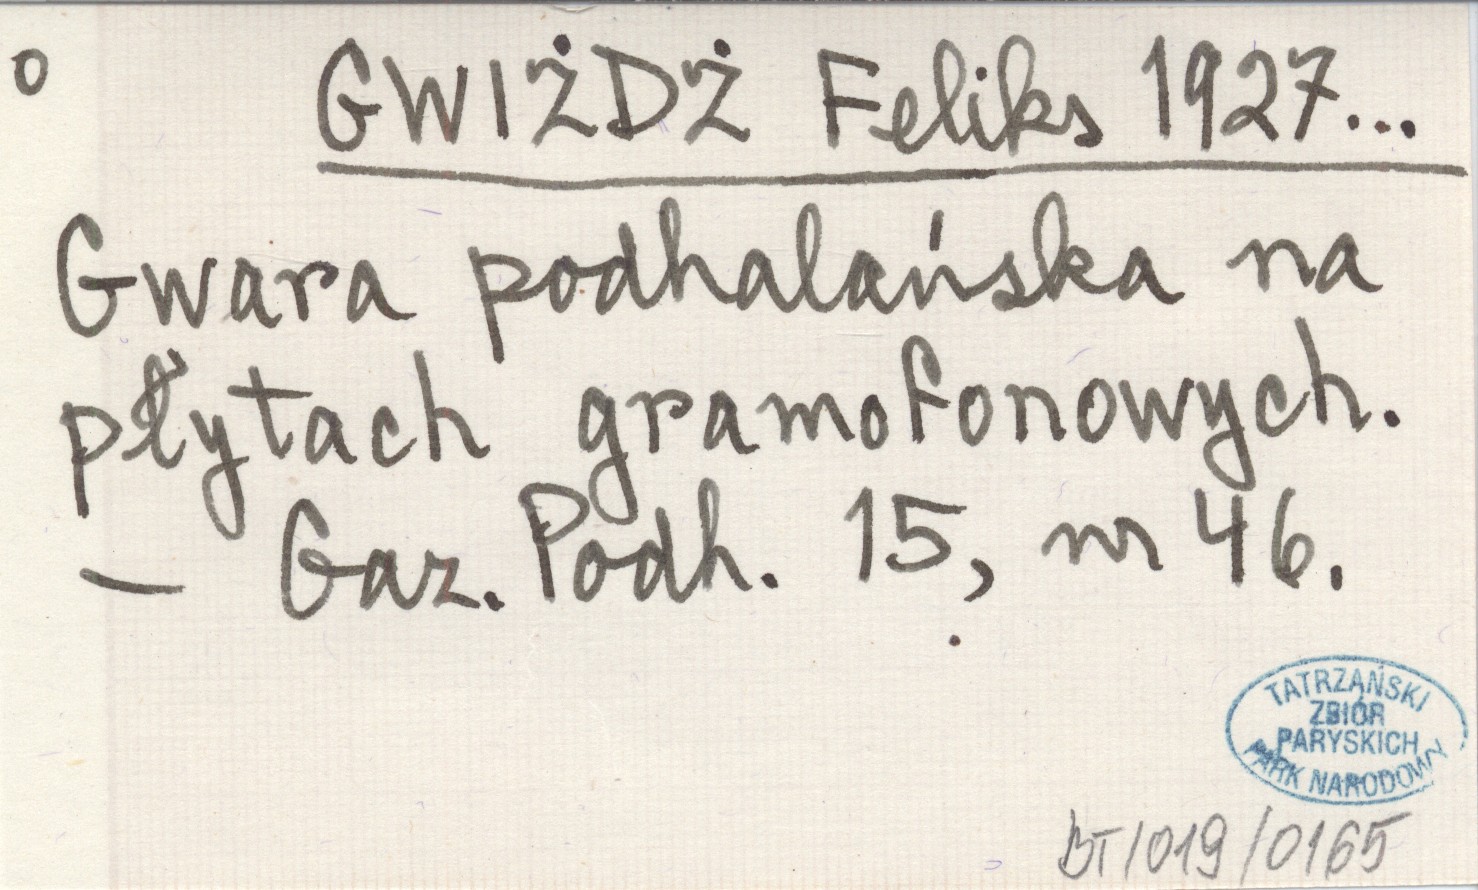 o GWIŻDŻ Feliks 1927...
Gwara podhalańska na
płytach gramofonowych.
— Gaz. Podh. 15, nr 46.
TATRZAŃSKI
ZBIÓR
PARYSKICH
PARK NARODOWY
BT/019/0165